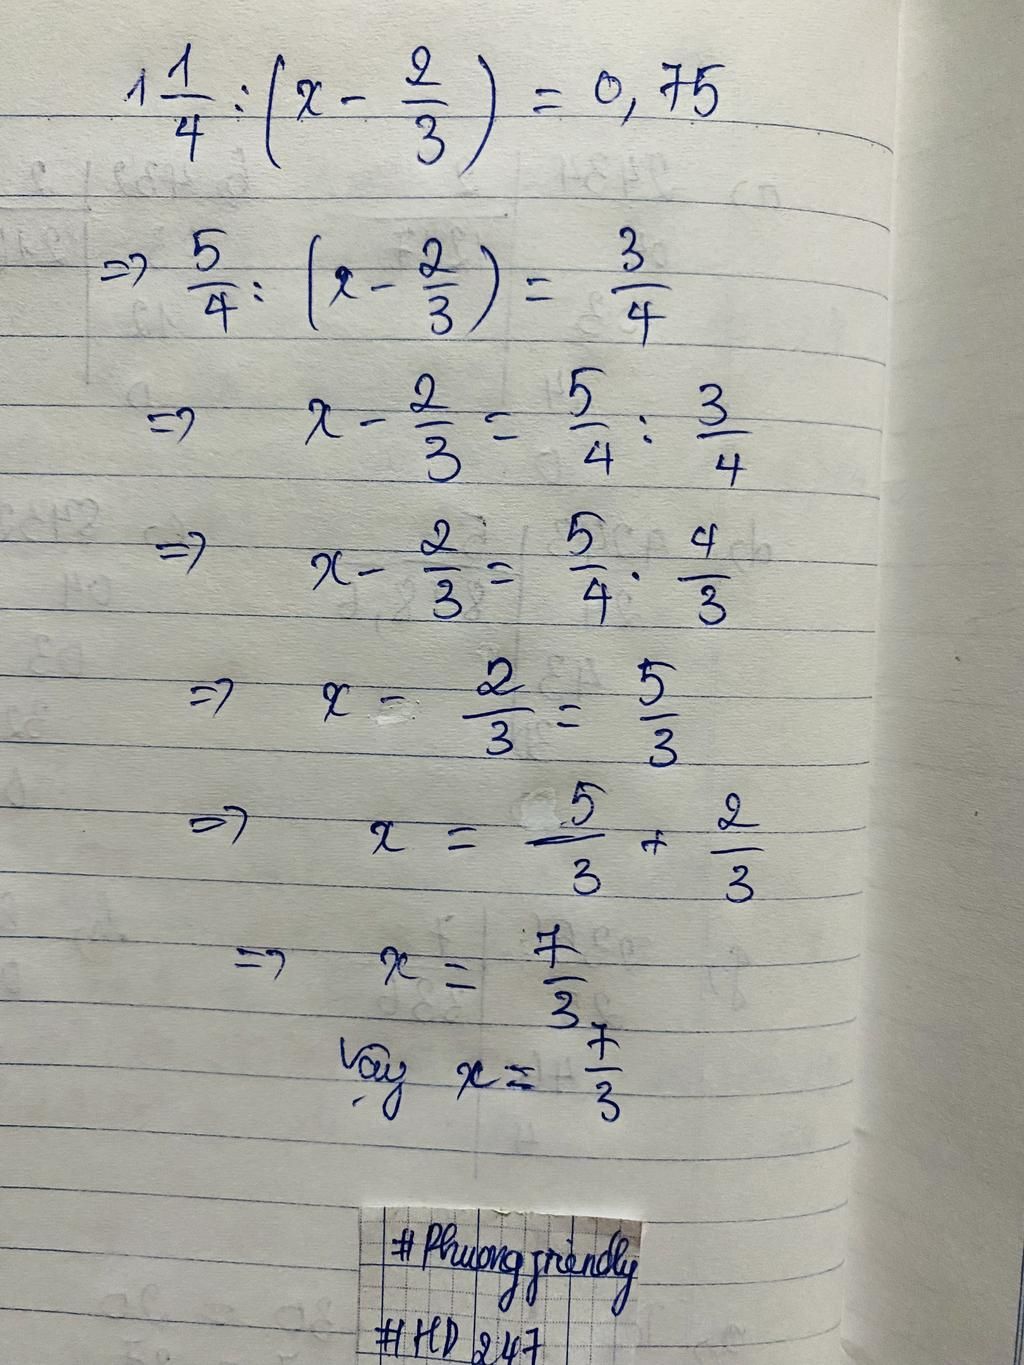 1 1/4 : (x - 2/3) = 0,75
=> 5/4 : (x - 2/3) = 3/4
=> x - 2/3 = 5/4 : 3/4
=> x - 2/3 = 5/4 . 4/3
=> x - 2/3 = 5/3
=> x = 5/3 + 2/3
=> x = 7/3
Vậy x = 7/3
#Phuongfriendly
#HD247